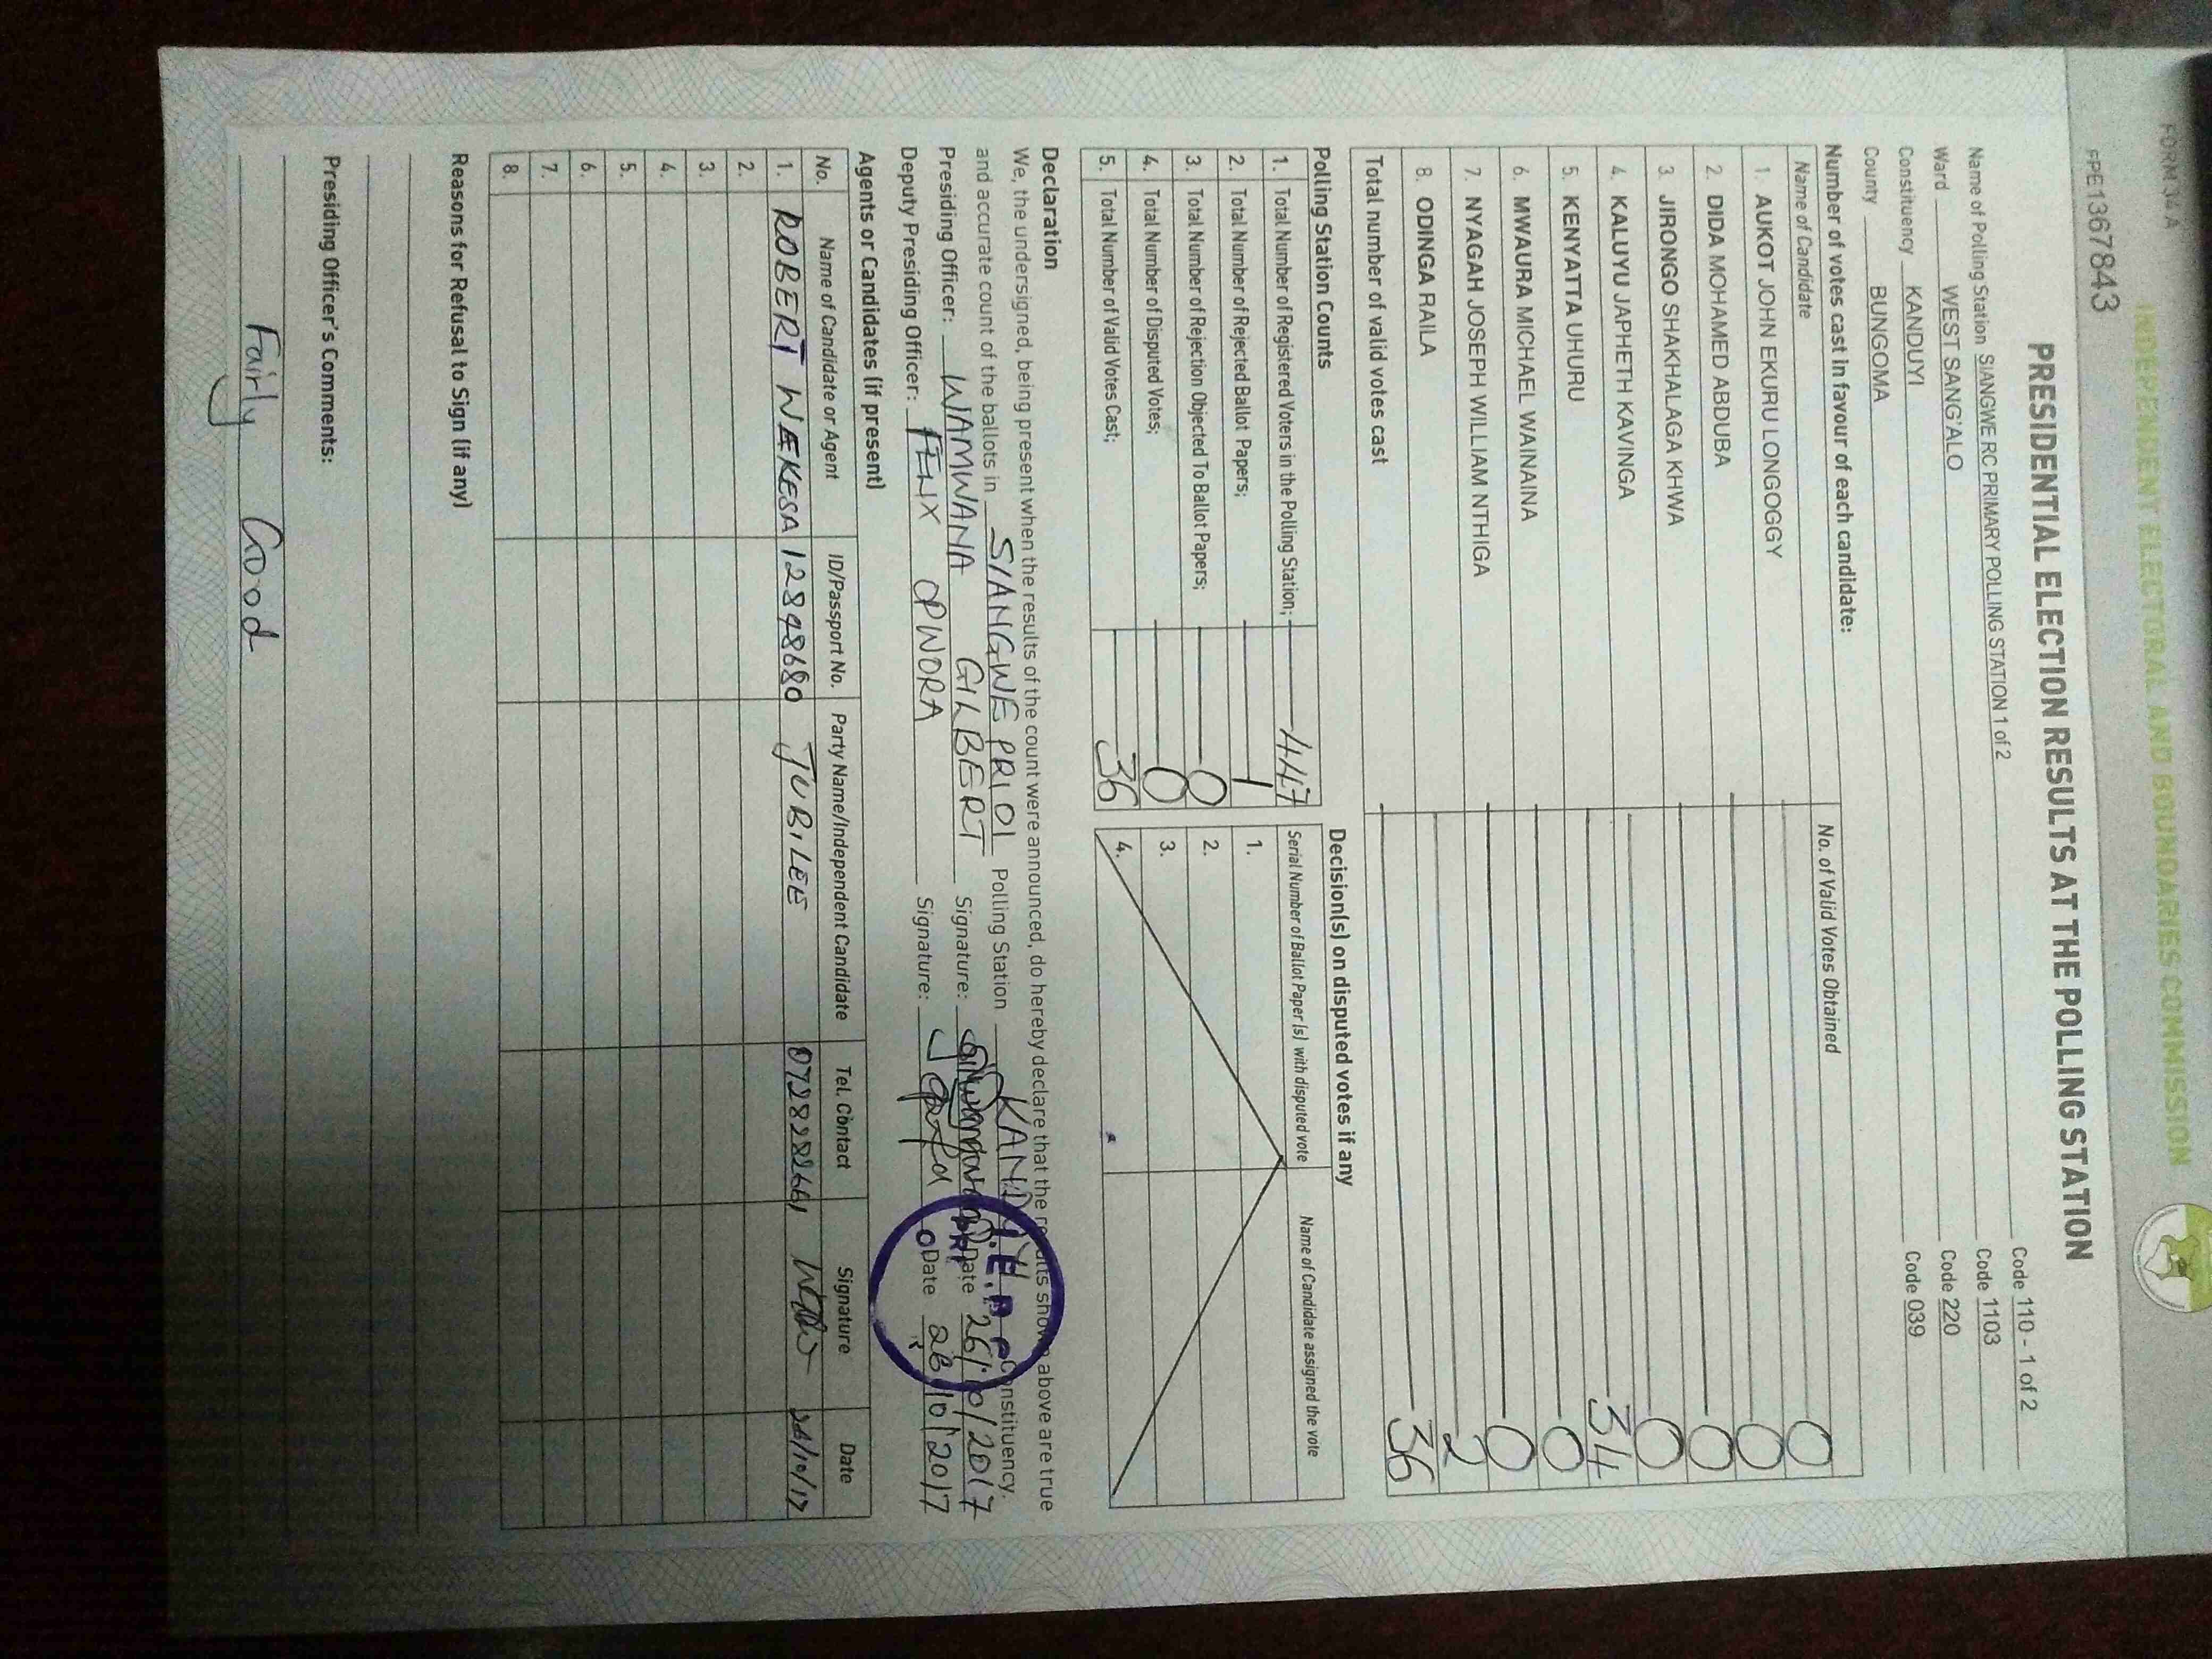 FORM 34 A
INDEPENDENT ELECTORAL AND BOUNDARIES COMMISSION
FPE1367843
PRESIDENTIAL ELECTION RESULTS AT THE POLLING STATION
Name of Polling Station SIANGWE RC PRIMARY POLLING STATION 1 of 2 Code 110 - 1 of 2
Ward WEST SANG'ALO Code 1103
Constituency KANDUYI Code 220
County BUNGOMA Code 039
Number of votes cast in favour of each candidate:
Name of Candidate No. of Valid Votes Obtained
1. AUKOT JOHN EKURU LONGOGGY 0
2. DIDA MOHAMED ABDUBA 0
3. JIRONGO SHAKHALAGA KHWA 0
4. KALUYU JAPHETH KAVINGA 0
5. KENYATTA UHURU 34
6. MWAURA MICHAEL WAINAINA 0
7. NYAGAH JOSEPH WILLIAM NTHIGA 0
8. ODINGA RAILA 2
Total number of valid votes cast 36
Polling Station Counts
1. Total Number of Registered Voters in the Polling Station; 447
2. Total Number of Rejected Ballot Papers; 1
3. Total Number of Rejection Objected To Ballot Papers; 0
4. Total Number of Disputed Votes; 0
5. Total Number of Valid Votes Cast; 36
Decision(s) on disputed votes if any
Serial Number of Ballot Paper (s) with disputed vote Name of Candidate assigned the vote
1.
2.
3.
4.
Declaration
We, the undersigned, being present when the results of the count were announced, do hereby declare that the results shown above are true
and accurate count of the ballots in SIANGWE PRI 01 Polling Station KANDUYI Constituency.
Presiding Officer: WAMWANA GILBERT Signature: Date 26/10/2017
Deputy Presiding Officer: FELIX OPWORA Signature: Date 26/10/2017
Agents or Candidates (if present)
No. Name of Candidate or Agent ID/Passport No. Party Name/Independent Candidate Tel. Contact Signature Date
1. ROBERT WEKESA 12848680 JUBILEE 0728282661 26/10/17
2.
3.
4.
5.
6.
7.
8.
Reasons for Refusal to Sign (if any)
Presiding Officer's Comments:
Fairly Good